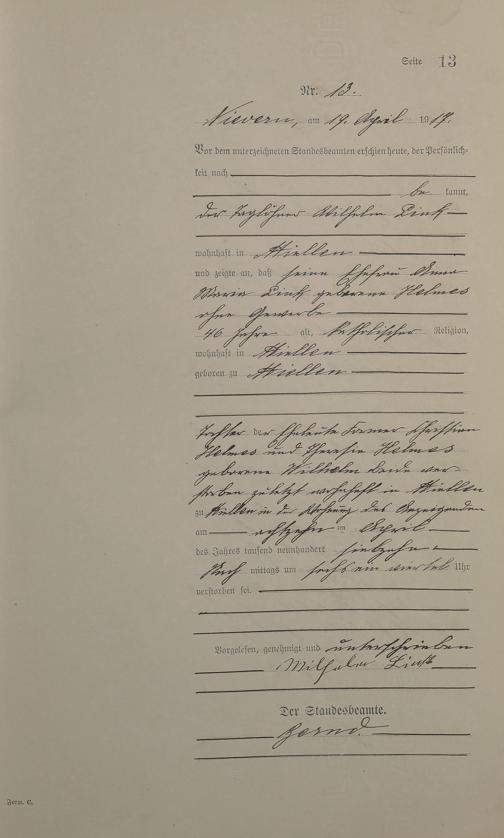 Seite 13
Nr. 13.
Nievern, am 19. April 1917.
Vor dem unterzeichneten Standesbeamten erschien heute, der Persönlich-
keit nach
be kannt,
der Taglöhner Wilhelm Link
wohnhaft in Miellen
und zeigte an, daß seine Ehefrau Anna
Maria Link geborene Helmes
ohne Gewerbe
46 Jahre alt, katholischer Religion,
wohnhaft in Miellen
geboren zu Miellen
Tochter der Eheleute Former Christian
Helmes und Theresia Helmes
geborene Wilhelm beide ver-
storben zuletzt wohnhaft in Miellen
zu Miellen in der Wohnung des Anzeigenden
am achtzehn ten April
des Jahres tausend neunhundert siebzehn
Nach mittags um sechs ein viertel Uhr
verstorben sei.
Vorgelesen, genehmigt und unterschrieben
Wilhelm Link
Der Standesbeamte.
Form. C.